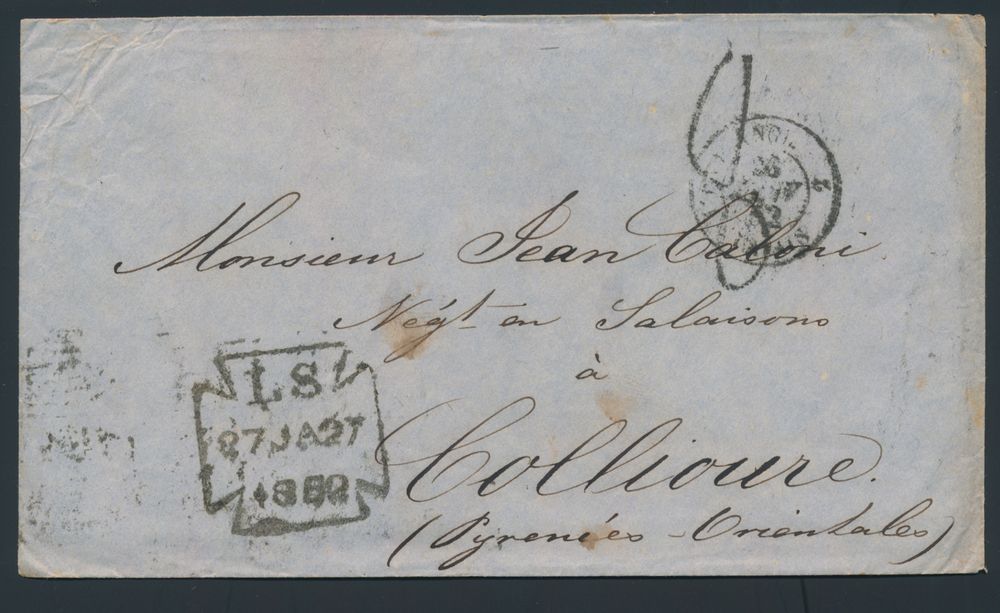 Monsieur Jean Caloni
Négt. en Salaisons
à
Collioure.
(Pyrenées-Orientales)
LS
27JA27
2